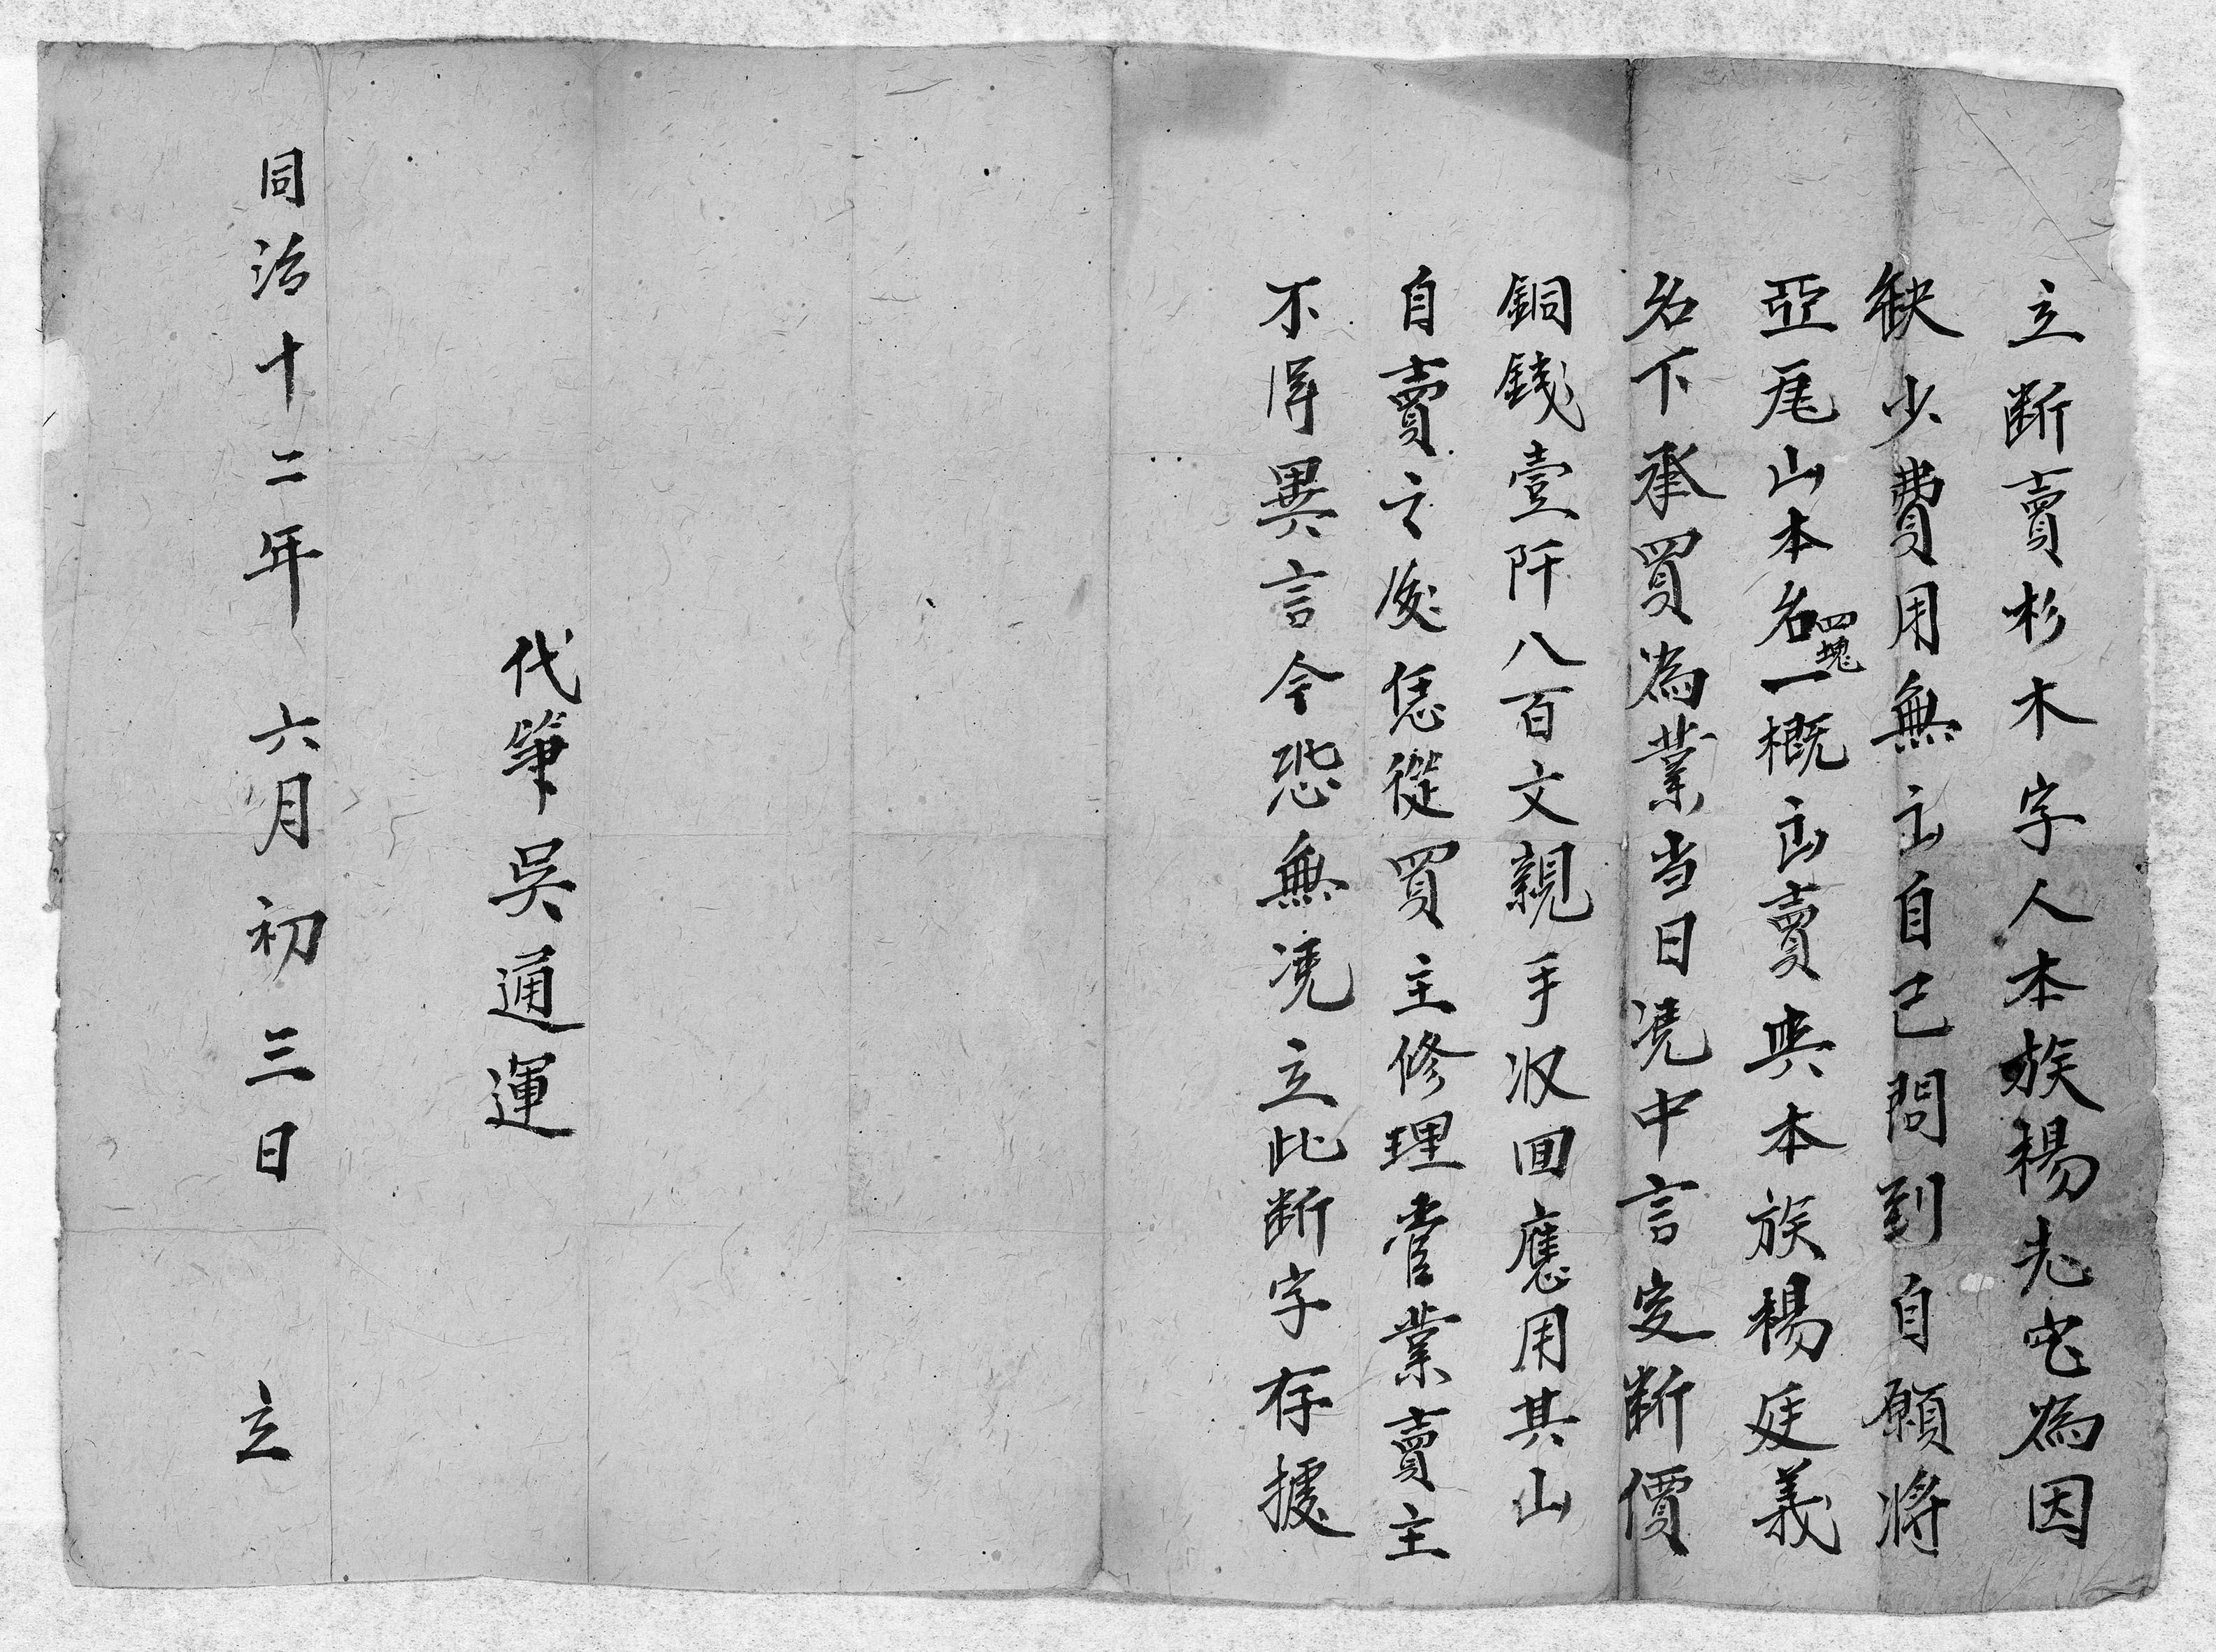 立断賣杉木字人本族楊光宅為因
缺少費用無出自己問到自願將
亞尾山本名四塊一概出賣與本族楊廷義
名下承買為業当日凴中言定断價
銅錢壹阡八百文親手收回應用其山
自賣之後恁從買主修理管業賣主
不得異言今恐無凴立此断字存據
代筆吳通運
同治十二年六月初三日 立